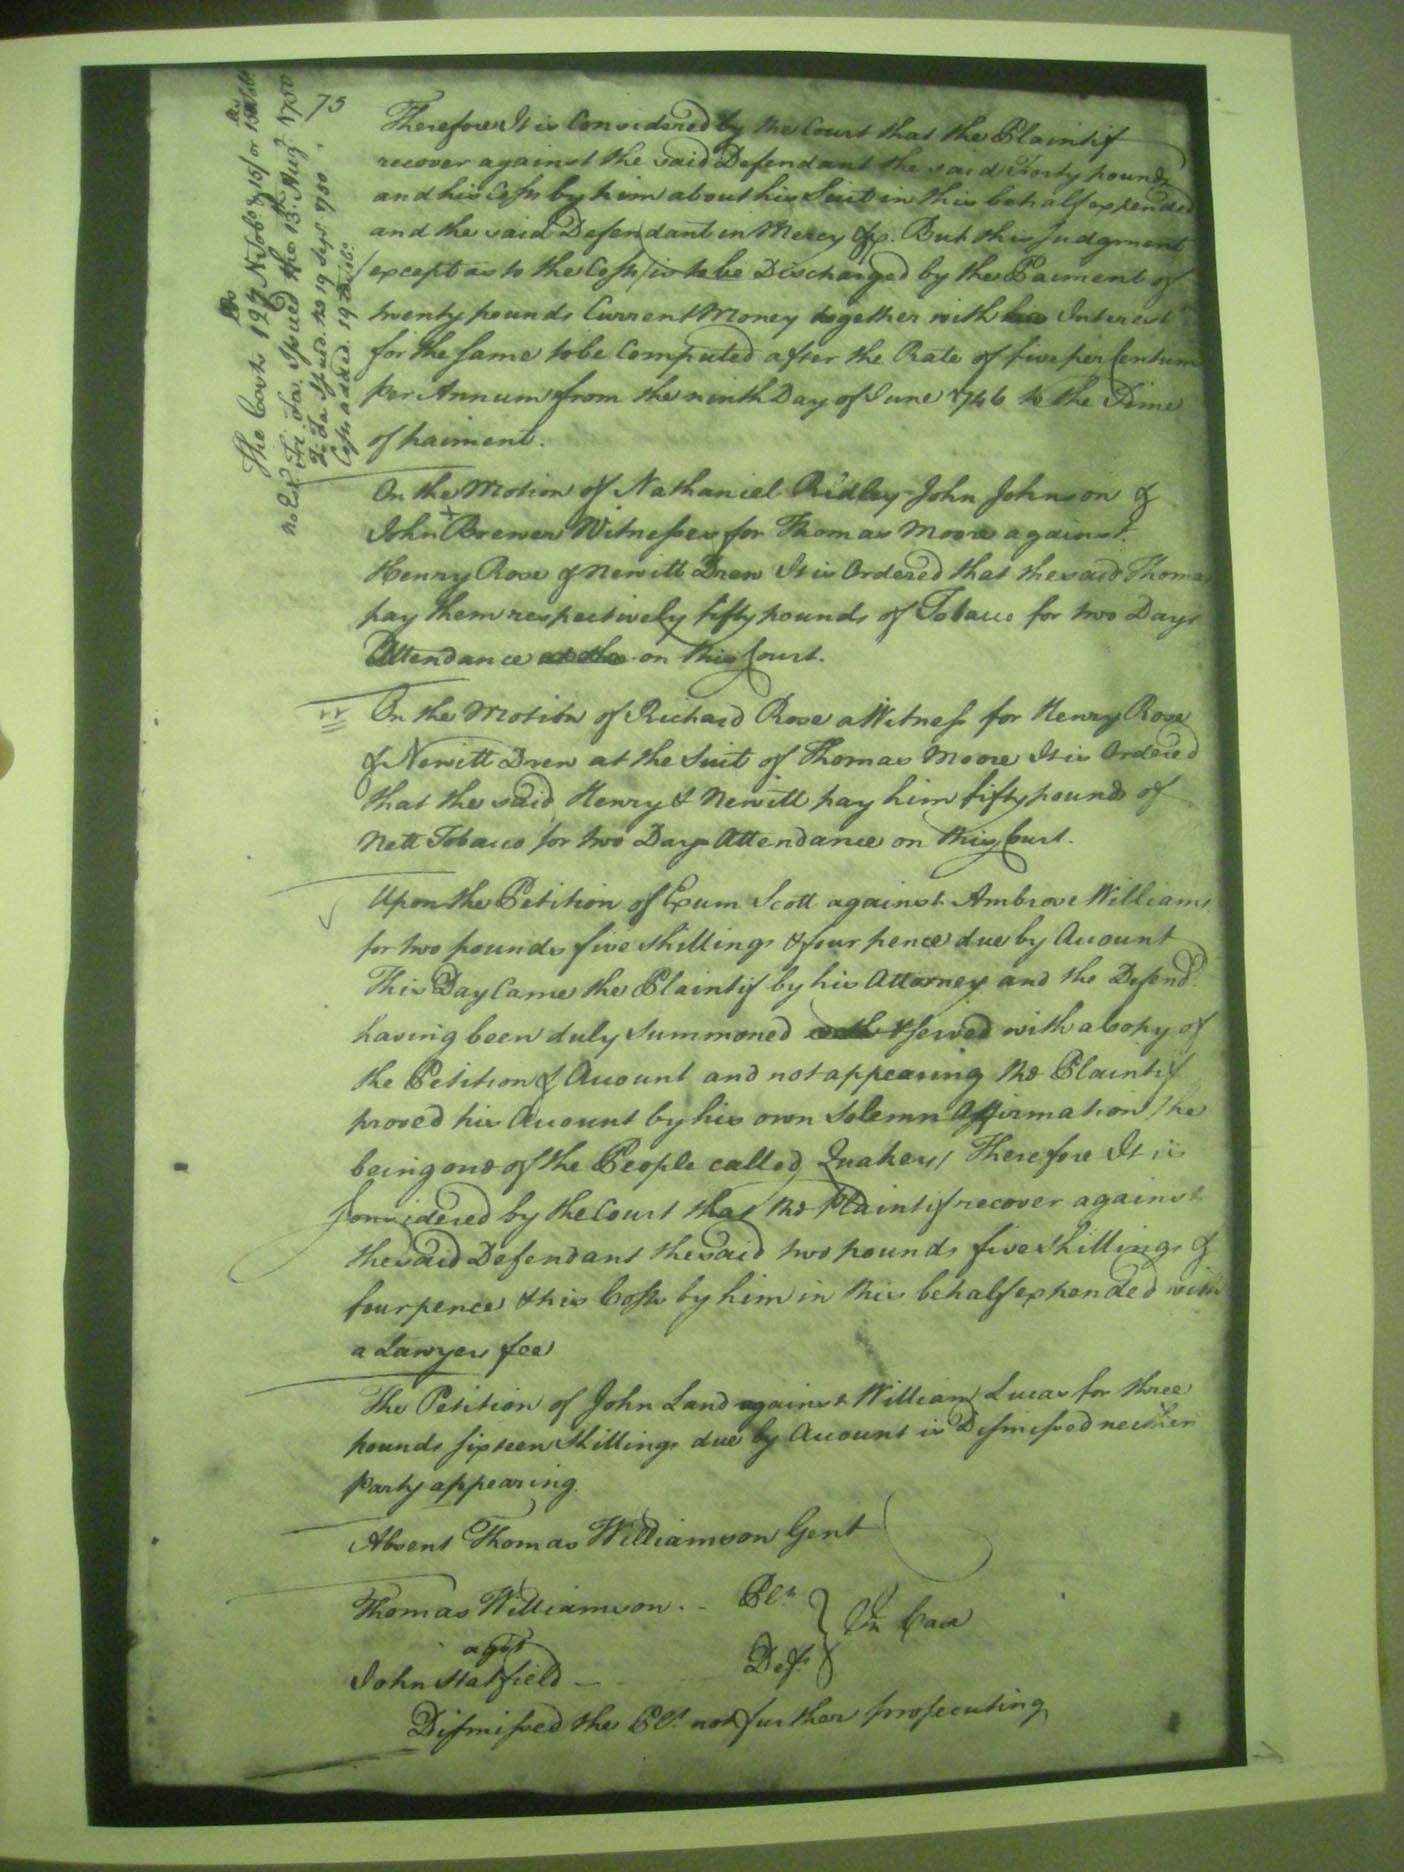 75
The Costs 127 N Tobo & 15/ or 150
Fi: Fa: Issued the 13. Augt. 1750
Fi Fa Issued. no 19 Sepr. 1750.
Costs added. 19
Therefore It is Considered by the Court that the Plaintif
recover against the said Defendant the said Forty pounds
and his Costs by him about his Suit in this behalf expended
and the said Defendant in Mercy &c. But this Judgment
/except as to the Costs/ is to be Discharged by the Paiment of
twenty pounds Current Money together with Interest
for the same to be Computed after the Rate of five per Centum
per Annum from the ninth Day of June 1746 to the Time
of paiment.
On the Motion of Nathaniel Ridley John Johnson &
John Brewer Witnesses for Thomas Moore against
Henry Rose & Newitt Drew It is Ordered that the said Thomas
pay them respectively fifty pounds of Tobacco for two Days
Attendance at the on this Court.
On the Motion of Richard Rose a Witness for Henry Rose
& Newitt Drew at the Suit of Thomas Moore It is Ordered
that the said Henry & Newitt pay him fifty pounds of
Nett Tobacco for two Days Attendance on this Court.
Upon the Petition of Exum Scott against Ambrose Williams
for two pounds five shillings & four pence due by Account
This Day Came the Plaintif by his Attorney and the Defendt.
having been duly summoned & served with a Copy of
the Petition & Account and not appearing the Plaintif
proved his Account by his own Solemn Affirmation /he
being one of the People called Quakers/ Therefore It is
Considered by the Court that the Plaintif recover against
the said Defendant the said two pounds five shillings &
four pence & his Costs by him in this behalf expended with
a Lawyers fee
The Petition of John Land against William Lucas for three
pounds sixteen shillings due by Account is Dismissed neither
Party appearing.
Absent Thomas Williamson Gent
Thomas Williamson . - Plt.
agst } In Case
John Hatfield - Deft.
Dismissed the Plt. not further prosecuting